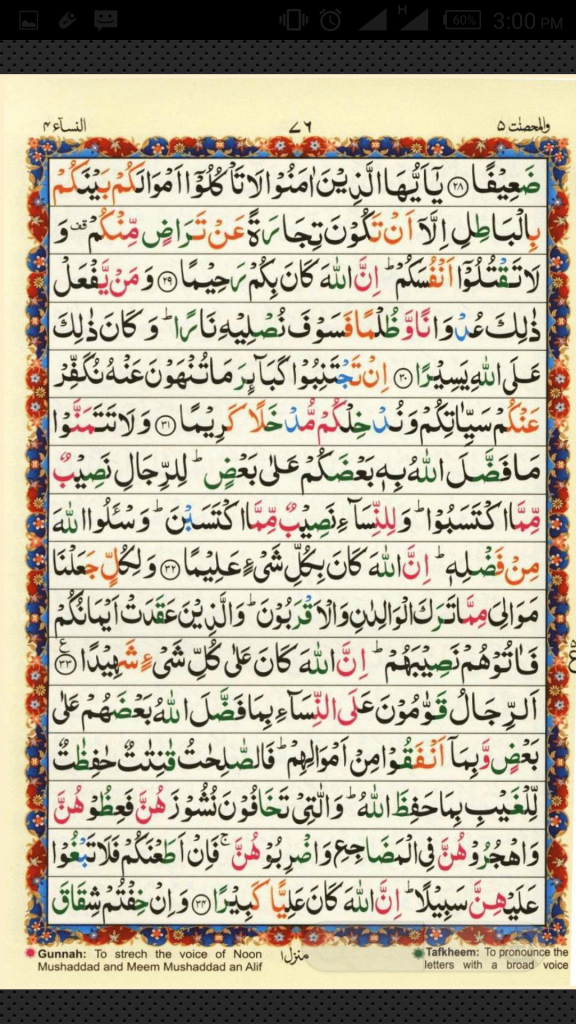 H 60% 3:00 PM
والمحصنٰت ۵ ۷۶ النسآء ۴
ضَعِيْفًا ﴿۲۸﴾ يٰۤاَيُّهَا الَّذِيْنَ اٰمَنُوْا لَا تَاْكُلُوْۤا اَمْوَالَكُمْ بَيْنَكُمْ
بِالْبَاطِلِ اِلَّاۤ اَنْ تَكُوْنَ تِجَارَةً عَنْ تَرَاضٍ مِّنْكُمْ ۫ وَ
لَا تَقْتُلُوْۤا اَنْفُسَكُمْ ؕ اِنَّ اللّٰهَ كَانَ بِكُمْ رَحِيْمًا ﴿۲۹﴾ وَ مَنْ يَّفْعَلْ
ذٰلِكَ عُدْوَانًا وَّ ظُلْمًا فَسَوْفَ نُصْلِيْهِ نَارًا ؕ وَ كَانَ ذٰلِكَ
عَلَى اللّٰهِ يَسِيْرًا ﴿۳۰﴾ اِنْ تَجْتَنِبُوْا كَبَآئِرَ مَا تُنْهَوْنَ عَنْهُ نُكَفِّرْ
عَنْكُمْ سَيِّاٰتِكُمْ وَ نُدْخِلْكُمْ مُّدْخَلًا كَرِيْمًا ﴿۳۱﴾ وَ لَا تَتَمَنَّوْا
مَا فَضَّلَ اللّٰهُ بِهٖ بَعْضَكُمْ عَلٰى بَعْضٍ ؕ لِلرِّجَالِ نَصِيْبٌ
مِّمَّا اكْتَسَبُوْا ؕ وَ لِلنِّسَآءِ نَصِيْبٌ مِّمَّا اكْتَسَبْنَ ؕ وَ سْـَٔلُوا اللّٰهَ
مِنْ فَضْلِهٖ ؕ اِنَّ اللّٰهَ كَانَ بِكُلِّ شَيْءٍ عَلِيْمًا ﴿۳۲﴾ وَ لِكُلٍّ جَعَلْنَا
مَوَالِيَ مِمَّا تَرَكَ الْوَالِدٰنِ وَ الْاَقْرَبُوْنَ ؕ وَ الَّذِيْنَ عَقَدَتْ اَيْمَانُكُمْ
فَاٰتُوْهُمْ نَصِيْبَهُمْ ؕ اِنَّ اللّٰهَ كَانَ عَلٰى كُلِّ شَيْءٍ شَهِيْدًا ﴿۳۳﴾ ع
اَلرِّجَالُ قَوّٰمُوْنَ عَلَى النِّسَآءِ بِمَا فَضَّلَ اللّٰهُ بَعْضَهُمْ عَلٰى
بَعْضٍ وَّ بِمَاۤ اَنْفَقُوْا مِنْ اَمْوَالِهِمْ ؕ فَالصّٰلِحٰتُ قٰنِتٰتٌ حٰفِظٰتٌ
لِّلْغَيْبِ بِمَا حَفِظَ اللّٰهُ ؕ وَ الّٰتِيْ تَخَافُوْنَ نُشُوْزَهُنَّ فَعِظُوْهُنَّ
وَ اهْجُرُوْهُنَّ فِي الْمَضَاجِعِ وَ اضْرِبُوْهُنَّ ۚ فَاِنْ اَطَعْنَكُمْ فَلَا تَبْغُوْا
عَلَيْهِنَّ سَبِيْلًا ؕ اِنَّ اللّٰهَ كَانَ عَلِيًّا كَبِيْرًا ﴿۳۴﴾ وَ اِنْ خِفْتُمْ شِقَاقَ
Gunnah: To strech the voice of Noon
Mushaddad and Meem Mushaddad an Alif
منزل۱
Tafkheem: To pronounce the
letters with a broad voice